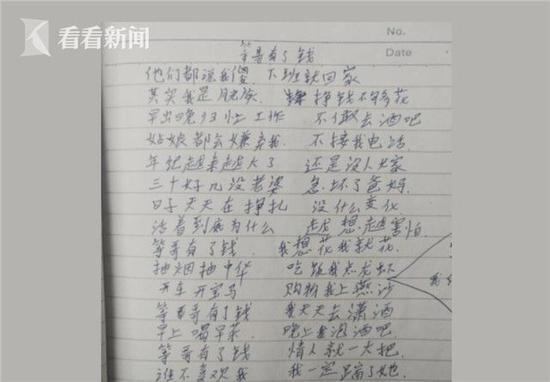 看看新闻
No.
Date
等哥有了钱
他们都说我傻 下班就回家
其实我是月光族 挣钱不够花
早出晚归忙工作 不敢去酒吧
姑娘都会嫌弃我 不接我电话
年纪越来越大了 还是没人大家
三十好几没老婆 急坏了爸妈
日子天天在挣扎 没什么变化
活着到底为什么 越想越害怕
等哥有了钱 我想花我就花
抽烟抽中华 吃饭我点龙虾
开车开宝马 购物我上燕沙
等哥有了钱 我天天去潇洒
早上喝早茶 晚上去泡酒吧
等哥有了钱 情人就一大把
谁不喜欢我 我一定踹了她